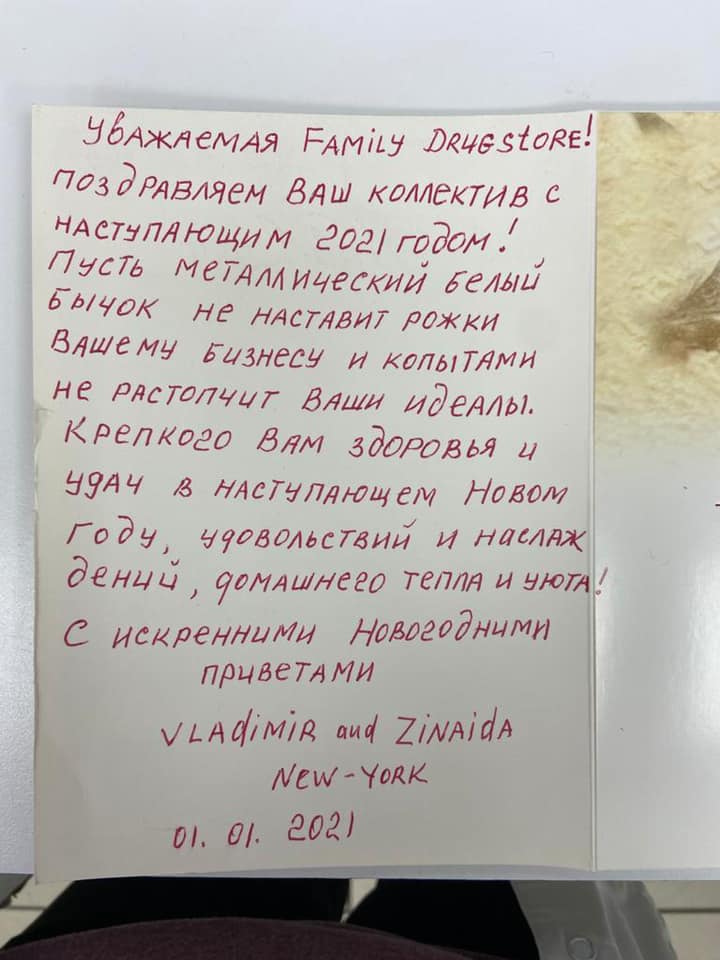 Уважаемая Family Drugstore!
поздравляем Ваш коллектив с
наступающим 2021 годом!
Пусть металлический белый
бычок не наставит рожки
Вашему бизнесу и копытами
не растопчит Ваши идеалы.
Крепкого Вам здоровья и
удач в наступающем Новом
году, удовольствий и наслаж
дений, домашнего тепла и уюта!
С искренними Новогодними
приветами
Vladimir and Zinaida
New-York
01. 01. 2021